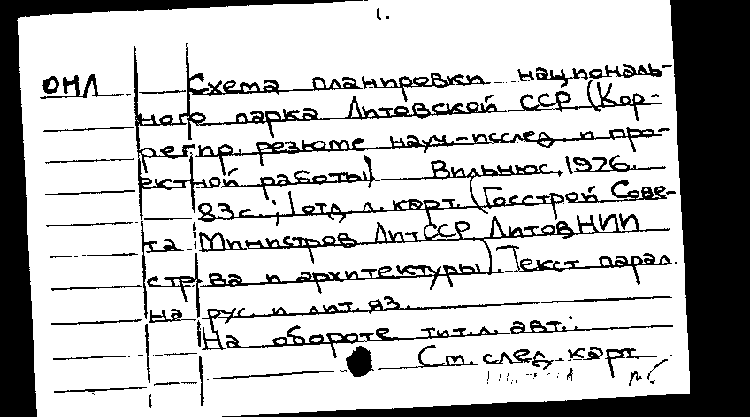 1.
ОНЛ Схема планировки националь-
ного парка Литовской ССР. (Кор-
ретир. резюме науч.-исслед. и про-
ектной работы) Вильнюс, 1976.
83 с.; 1 отд. л. карт. (Госстрой Сове-
та Министров ЛитССР ЛитовНИИ
стр-ва и архитектуры). Текст парал.
на рус. и лит. яз.
На обороте тит. л. авт.:
См. след. карт.